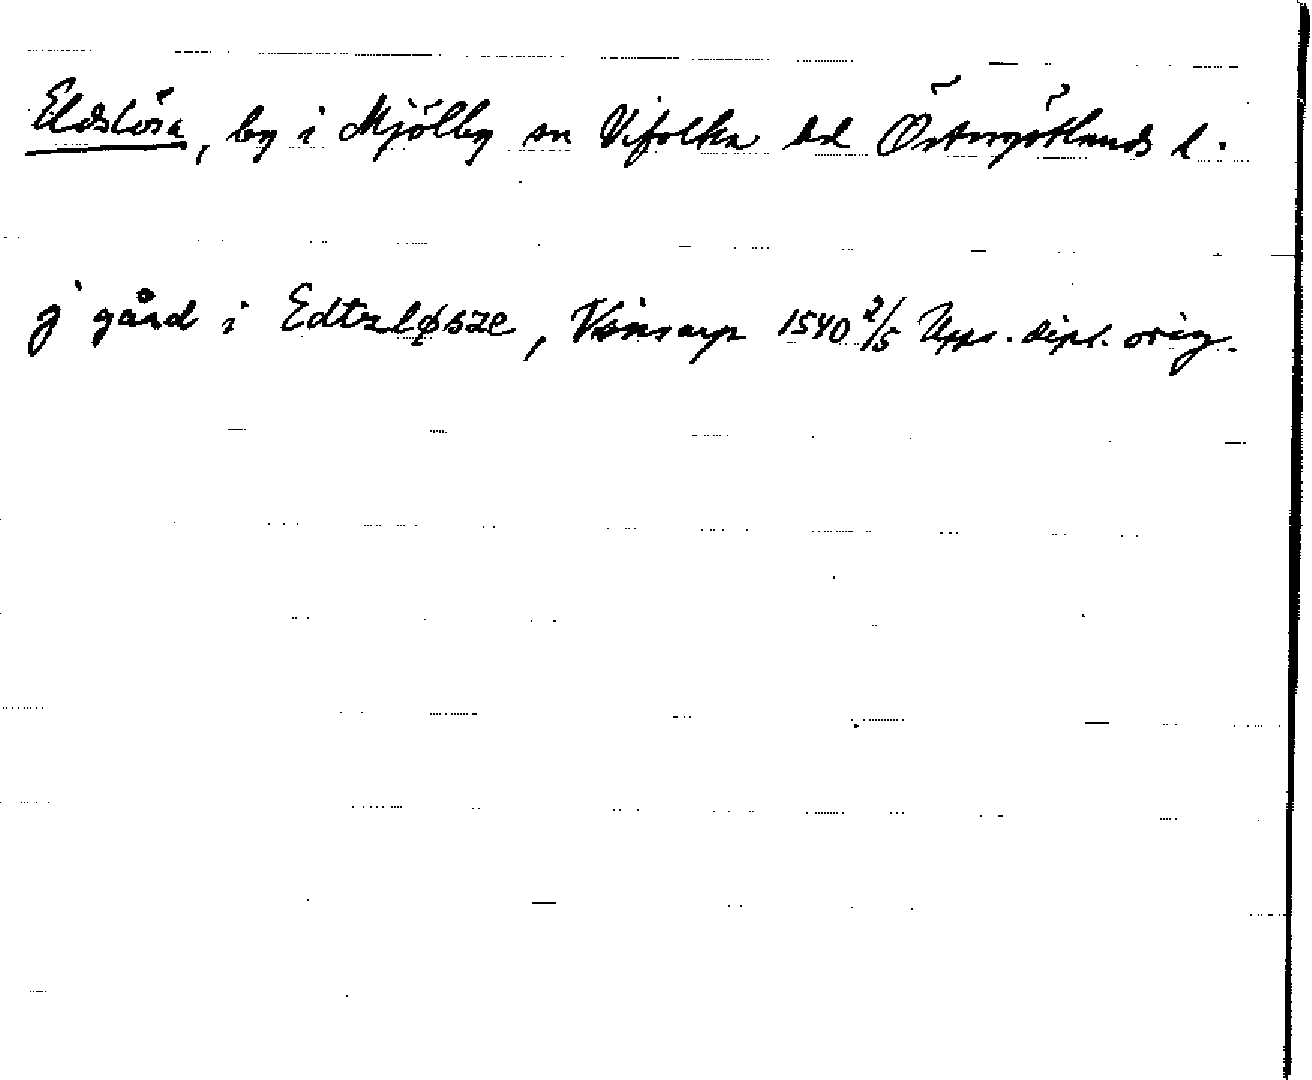 Eldslösa, by i Mjölby sn Vifolka hd Östergötlands l.
j gård i Edtzløsze, Vinsarp 1540 2/5 Upps. dipl. orig.